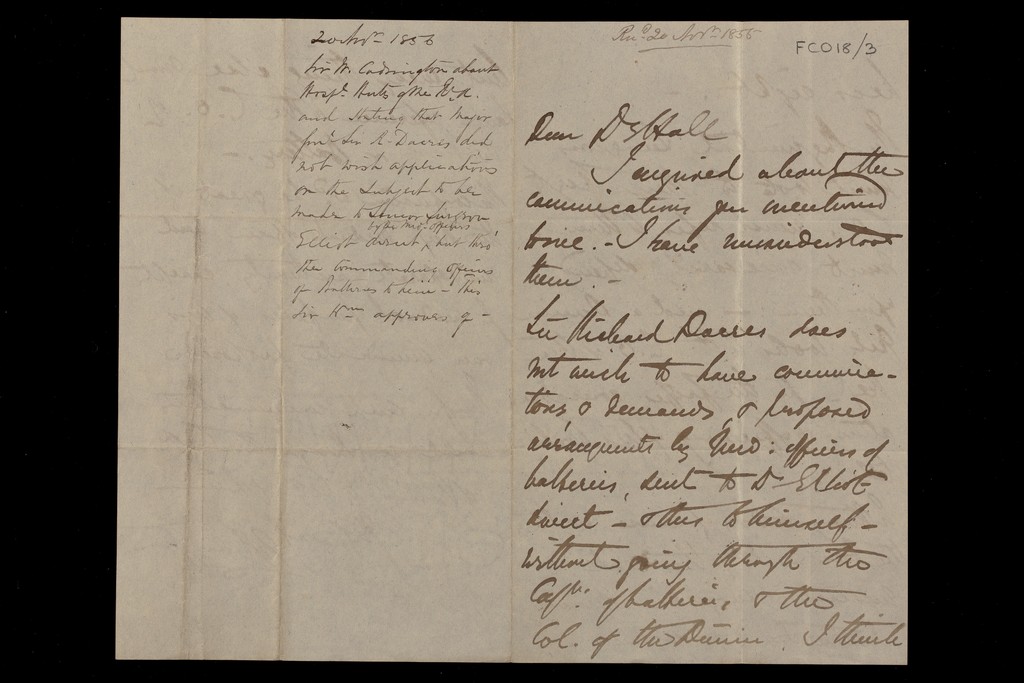 20 Novr 1855
Sir W. Codrington about
Hospl. Huts of the R. A.
and stating that Major
Genl Sir R. Dacres did
not wish applications
on the subject to be
made to Senior Surgeon
by the Med. Officers
Elliot direct, but thro'
the Commanding Officers
of Batteries to him - this
Sir Wm approves of -
Recd. 20 Novr. 1855
FCO18/3
Dear Dr Hall
I enquired about the
communications you mentioned
to me. - I have misunderstood
them. -
Sir Richard Dacres does
not wish to have communica-
tions, & demands, & proposed
arrangements by Med: officers of
batteries, sent to Dr Elliot
direct - & thus to himself -
without going through the
Capts. of batteries, & the
Col. of the Divin I think